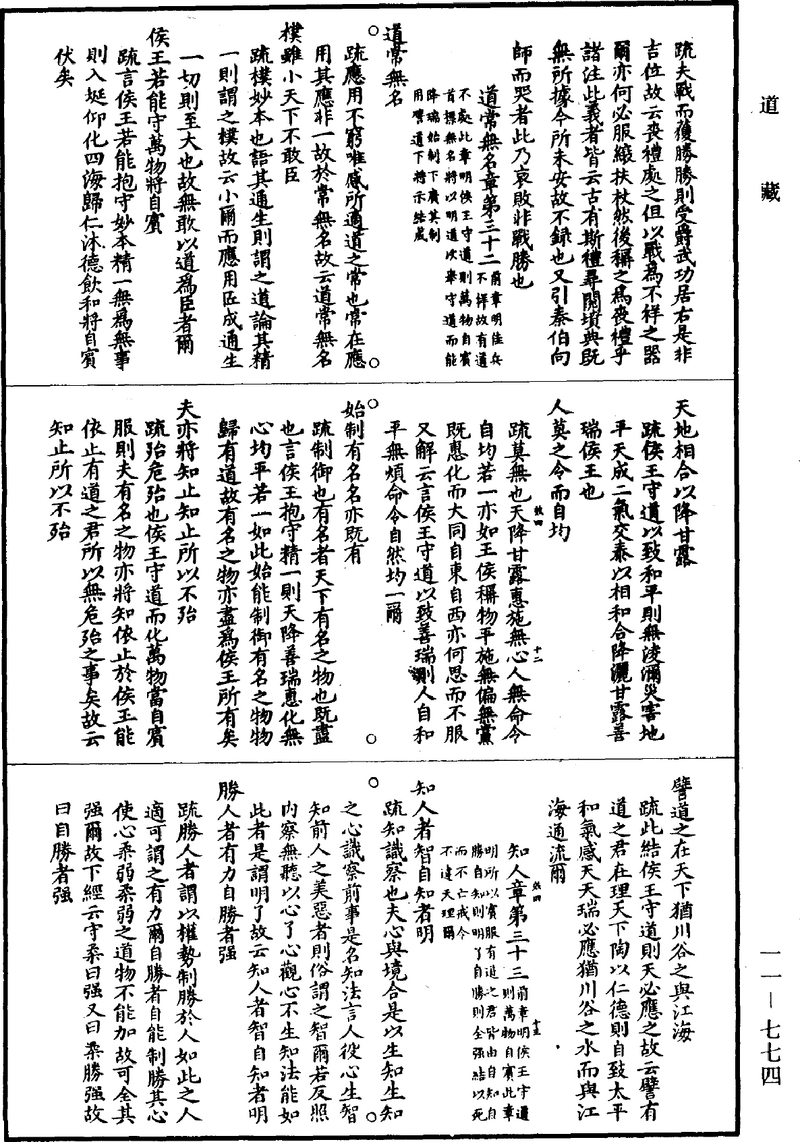 道藏
一一—七七四
疏夫戰而獲勝勝則受爵武功居右是非
吉位故云喪禮處之但以戰為不祥之器
爾亦何必服縗扶杖然後稱之為喪禮乎
諸注此義者皆云古有斯禮尋閱墳典既
無所據今所未安故不録也又引秦伯向
師而哭者此乃哀敗非戰勝也
道常無名章第三十二
前章明佳兵
不祥故有道
不處此章明侯王守道則萬物自賓
首標無名將以明道次舉守道而能
降瑞始制下廣其制
用譬道下將示結成
道常無名
疏應用不窮唯感所適道之常也常在應
用其應非一故於常無名故云道常無名
樸雖小天下不敢臣
疏樸妙本也語其通生則謂之道論其精
一則謂之樸故云小爾而應用匠成通生
一切則至大也故無敢以道為臣者爾
侯王若能守萬物將自賓
疏言侯王若能抱守妙本精一無為無事
則入埏仰化四海歸仁沐德飲和將自賓
伏矣
天地相合以降甘露
疏侯王守道以致和平則無淩瀰災害地
平天成二氣交泰以相和合降灑甘露善
瑞侯王也
人莫之令而自均
疏莫無也天降甘露惠施無心人無命令
自均若一亦如王侯稱物平施無偏無黨
既惠化而大同自東自西亦何思而不服
又解云言侯王守道以致善瑞則人自和
平無煩命令自然均一爾
始制有名名亦既有
疏制御也有名者天下有名之物也既盡
也言侯王抱守精一則天降善瑞惠化無
心均平若一如此始能制御有名之物物
歸有道故有名之物亦盡為侯王所有矣
夫亦將知止知止所以不殆
疏殆危殆也侯王守道而化萬物當自賓
服則夫有名之物亦將知依止於侯王能
依止有道之君所以無危殆之事矣故云
知止所以不殆
譬道之在天下猶川谷之與江海
疏此結侯王守道則天必應之故云譬有
道之君在理天下陶以仁德則自致太平
和氣感天天瑞必應猶川谷之水而與江
海通流爾
知人章第三十三
前章明侯王守道
則萬物自賓此章
明所以賓服有道之君皆由自知自
勝自知則明了自勝則全强結以死
而不亡戒令
不違天理爾
知人者智自知者明
疏知識察也夫心與境合是以生知生知
之心識察前事是名知法言人役心生智
知前人之美惡者則俗謂之智爾若反照
内察無聽以心了心觀心不生知法能如
此者是謂明了故云知人者智自知者明
勝人者有力自勝者强
疏勝人者謂以權勢制勝於人如此之人
適可謂之有力爾自勝者自能制勝其心
使心柔弱柔弱之道物不能加故可全其
强爾故下經云守柔曰强又曰柔勝强故
曰自勝者强